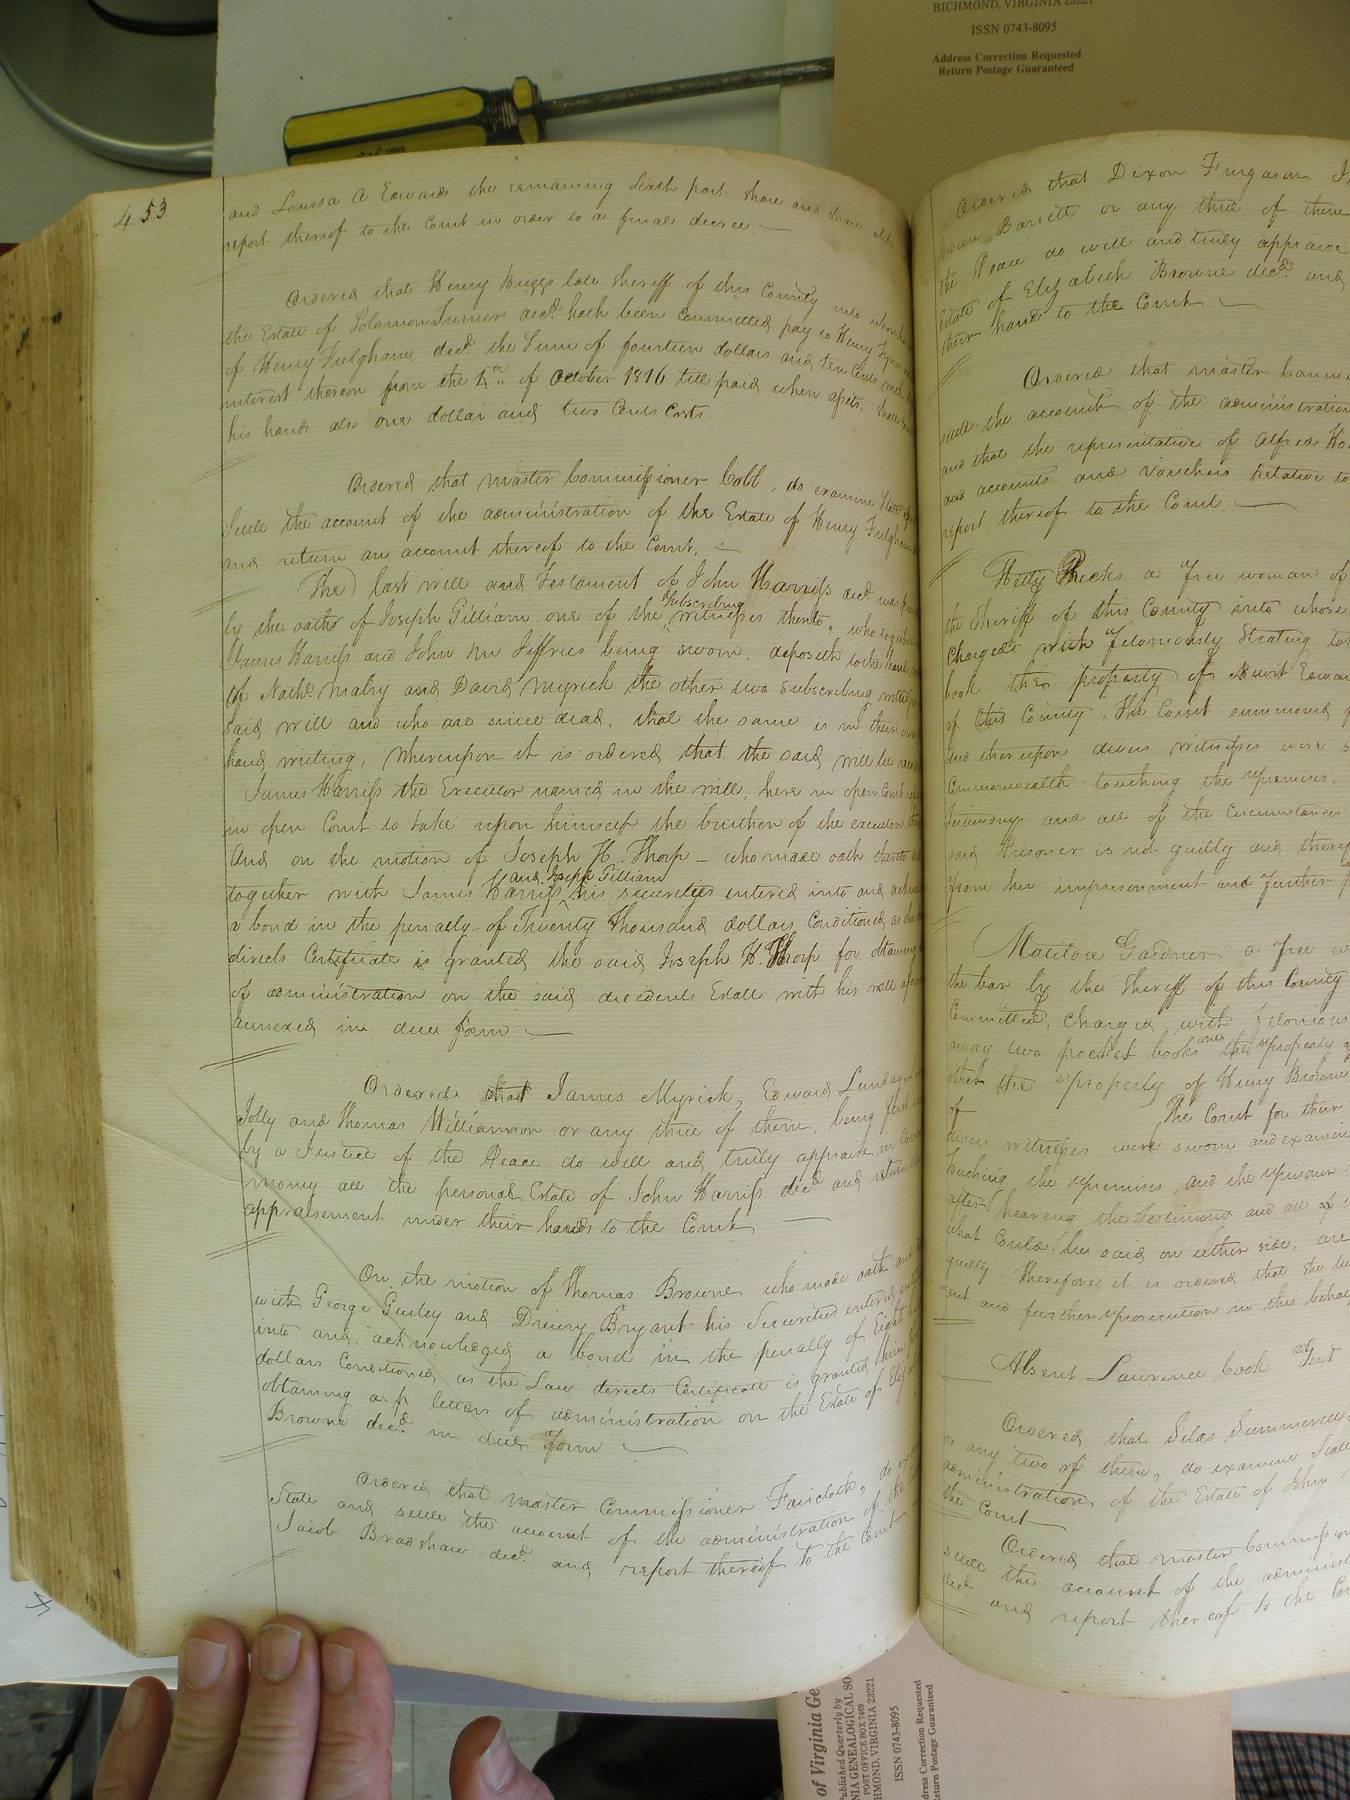 RICHMOND, VIRGINIA 23221
ISSN 0743-8095
Address Correction Requested
Return Postage Guaranteed
453
and Louisa A Edwards the remaining Sixth part share and share
report thereof to the Court in order to a final decree.
Ordered that Henry Briggs late Sheriff of this County into
the Estate of Solomon Turner decd. hath been committed pay to Henry
of Henry Fulgham decd. the Sum of fourteen dollars and ten Cents
interest thereon from the of October 1816 till paid when assets
his hands also one dollar and two Cents Costs
Ordered that master Commissioner Cobb, do examine State
Settle the account of the administration of the Estate of Henry Fulgham
and return an account thereof to the Court.
The last will and Testament of John Harriss decd was
by the oath of Joseph Gilliam one of the Subscribing witnesses thereto, who together
James Harriss and John being sworn, deposeth to the hand
of Nathl. Maby and David Myrick the other two subscribing
said will and who are since dead, that the same is in their
hand writing, whereupon it is ordered that the said will be
James Harriss the Executor named in the will, here in open Court
in open Court to take upon himself the burthen of the execution
And on the motion of Joseph H. Thorp – who made oath thereto
together with James Harriss and Joseph Gilliam his securities entered into and
a bond in the penalty of Twenty Thousand dollars Conditioned as the
directs Certificate is granted the said Joseph H. Thorp for obtaining
of administration on the said decedents Estate with his will
annexed in due form
Ordered that James Myrick, Edward Lunday
Jolly and Thomas Williamson or any three of them, being first
by a Justice of the Peace do well and truly appraise in
money all the personal Estate of John Harriss decd and return
appraisement under their hands to the Court
On the motion of Thomas Browne who made oath and
with George Gurley and Drewry Bryant his Securities entered
into and acknowledged a bond in the penalty of Eight
dollars Conditioned as the Law directs Certificate is granted him
obtaining letters of administration on the Estate of
Browne decd. in due form
Ordered that master Commissioner Faircloth, do
State and settle the account of the administration of the
Jacob Bradshaw decd. and report thereof to the Court
Ordered that Dixon Furgason
Barrett or any three of them
the Peace do well and truly appraise
Estate of Elizabeth Browne decd. and
their hands to the Court
Ordered that master
settle the account of the administration
and that the representative of Alfred
accounts and Vouchers relative to
report thereof to the Court
Hetty Ricks a free woman of
the Sheriff of this County into whose
charged with feloniously Stealing
book the property of Edwards
of this County. The Court summoned
And thereupon divers witnesses were
Commonwealth touching the premises,
testimony and all of the Circumstances
said Prisoner is not guilty and
from her imprisonment and further
Matilda Gardner a free
the bar by the Sheriff of this County
Committed, charged with felonious
away two pocket books one the property
other the property of Henry Browne
of The Court for their
divers witnesses were sworn and examined
touching the premises and the prisoner
after hearing the Testimony and all of
what Could be said on either side, are
guilty. Therefore it is ordered that she
and further prosecution in this behalf
Absent Lawrence Cook Gent
Ordered that Silas Summerell
or any two of them, do examine State
administration of the Estate of John
the Court
Ordered that master Commission
settle the account of the
decd. and report thereof to the
of Virginia Ge
Published Quarterly by
NIA GENEALOGICAL SO
POST OFFICE BOX 7469
HMOND, VIRGINIA 23221
ISSN 0743-8095
ddress Correction Requested
Return Postage Guaranteed